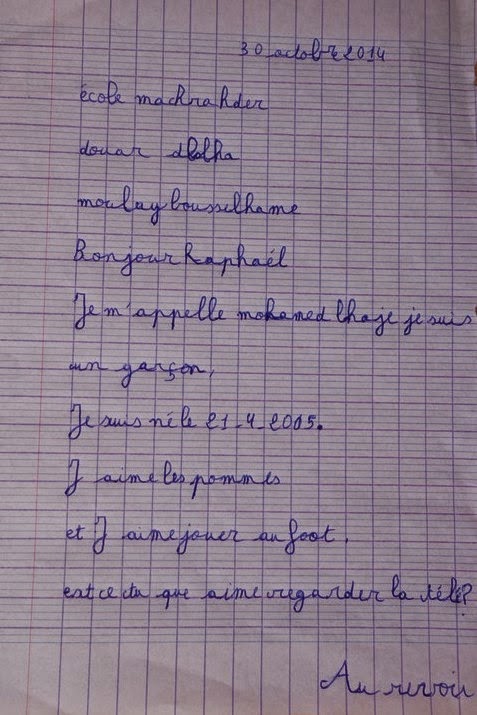 30 octobre 2014
école machrahder
douar dlalha
moulay bousselhame
Bonjour Raphaël
Je m'appelle mohamed lhaje je suis
un garçon,
Je suis né le 21-4-2005.
J aime les pommes
et J aime jouer au foot.
est ce tu que aime regarder la télé?
Au revoir